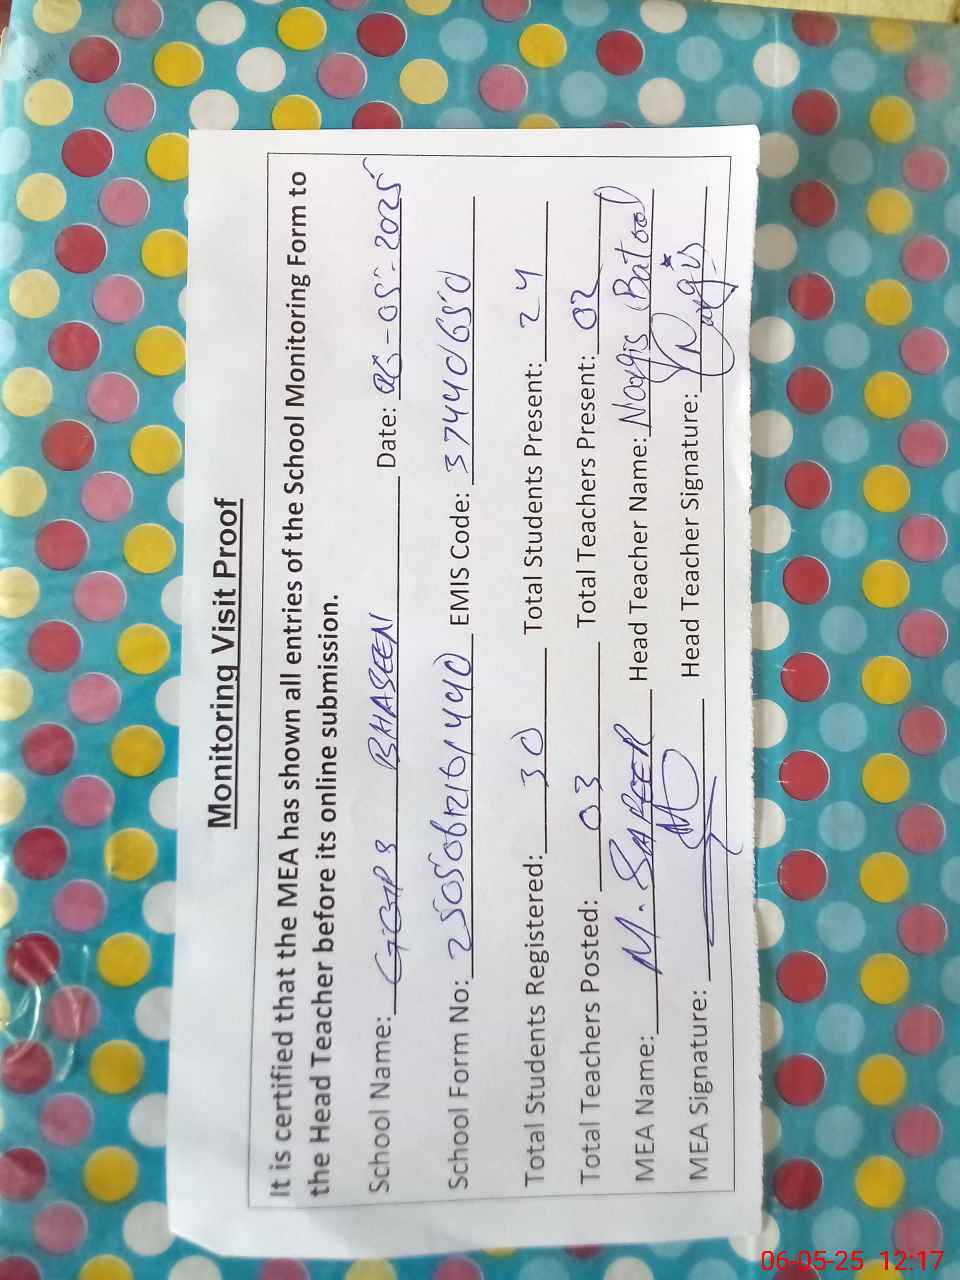 Monitoring Visit Proof
It is certified that the MEA has shown all entries of the School Monitoring Form to
the Head Teacher before its online submission.
School Name: GGPS BHASEEN Date: 06-05-2025
School Form No: EMIS Code: 37440650
Total Students Registered: 30 Total Students Present: 24
Total Teachers Posted: 03 Total Teachers Present: 02
MEA Name: M. SAFEER Head Teacher Name: Nargis Batool
MEA Signature: Head Teacher Signature: Nargis
06-05-25 12:17